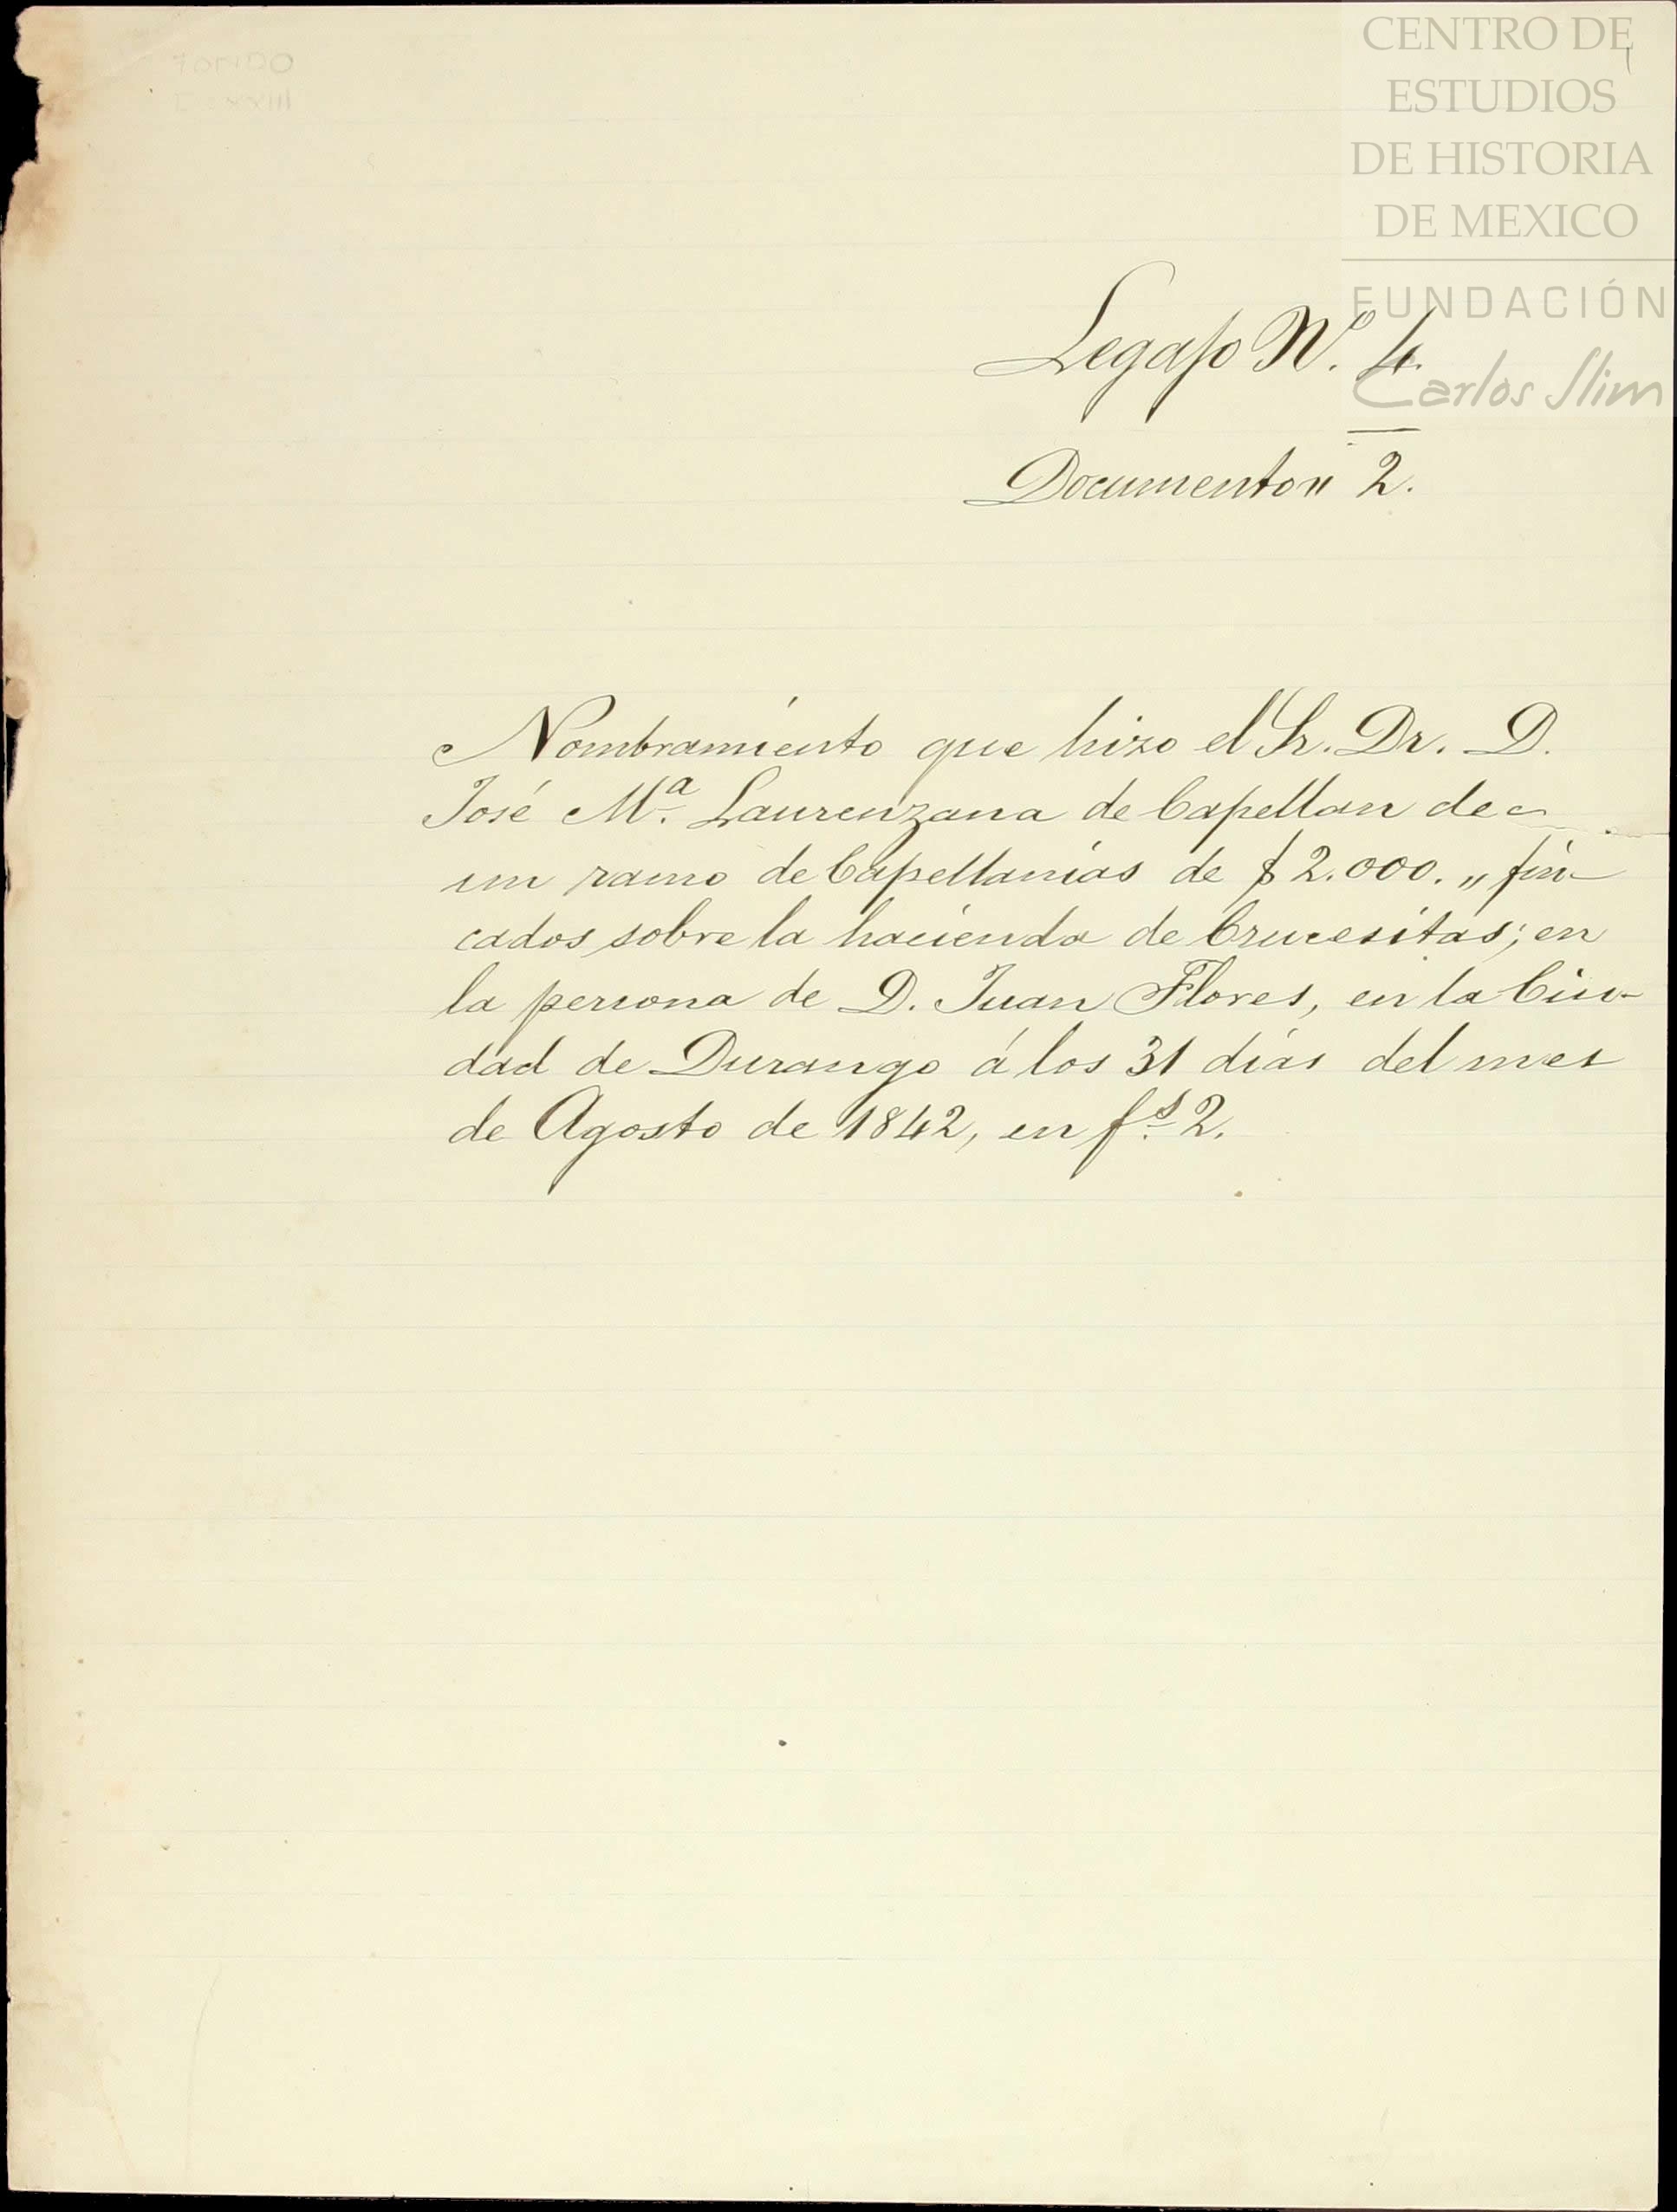 FONDO
CENTRO DE
ESTUDIOS
DE HISTORIA
DE MEXICO
FUNDACIÓN
Carlos Slim
1
Legajo Nº. 4.
Documento " 2.
Nombramiento que hizo el Sr. Dr. D.
José Mª. Laurenzana de Capellan de
un ramo de Capellanías de $2.000. " fin-
cados sobre la hacienda de Crucesitas; en
la persona de D. Juan Flores, en la Ciu-
dad de Durango á los 31 días del mes
de Agosto de 1842, en fs. 2.